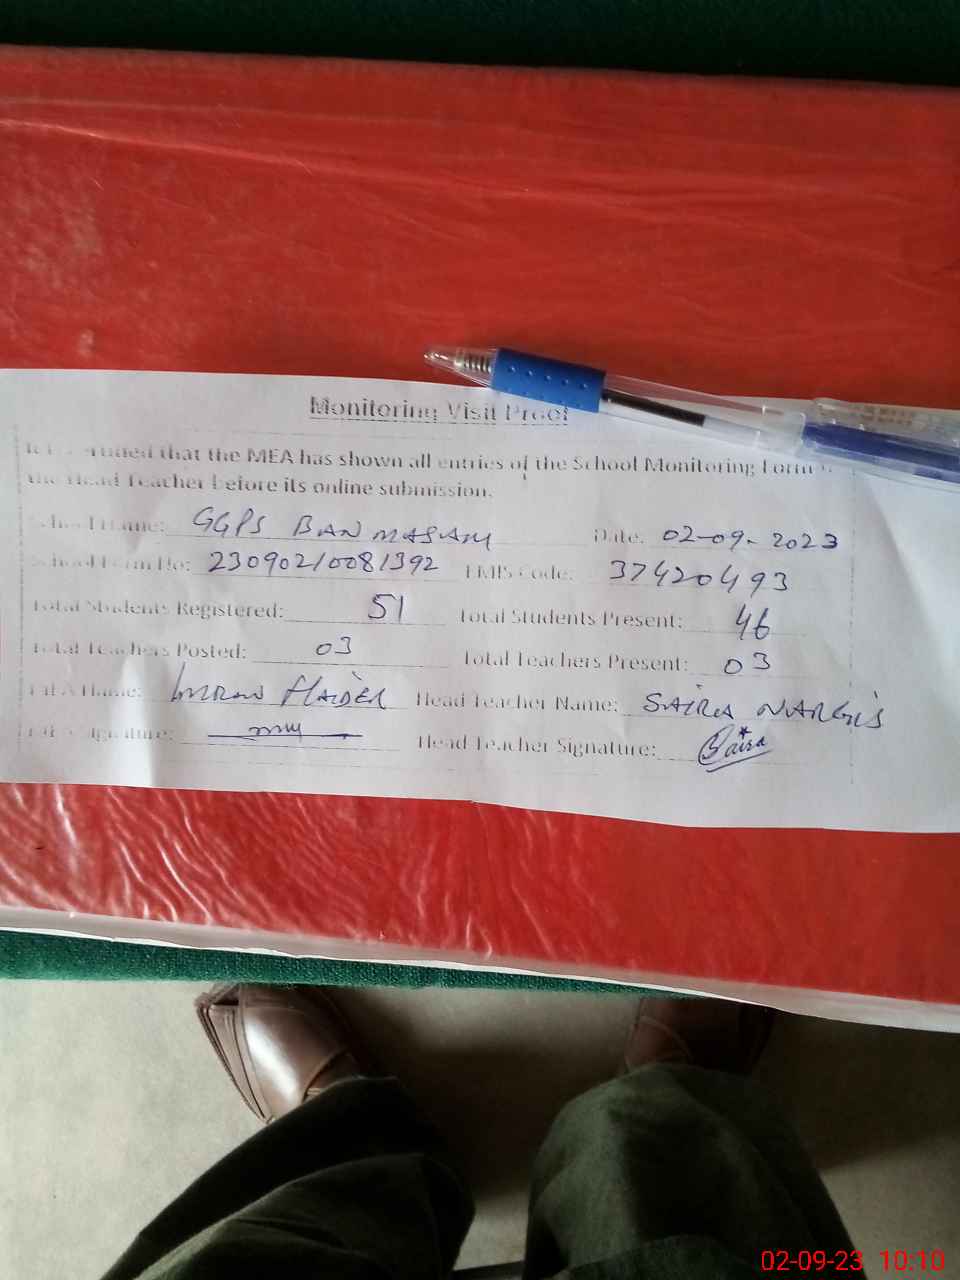 Monitoring Visit Proof
that the MEA has shown all entries of the School Monitoring Form
the Head Teacher before its online submission.
School Name: GGPS BAN MASAM Date: 02-09-2023
School Form No: 23090210081392 EMIS Code: 37420493
Total Students Registered: 51 Total Students Present: 46
Total Teachers Posted: 03 Total Teachers Present: 03
MEA Name: IMRAN HAIDER Head Teacher Name: SAIRA NARGIS
Signature: Head Teacher Signature: Saira
02-09-23 10:10